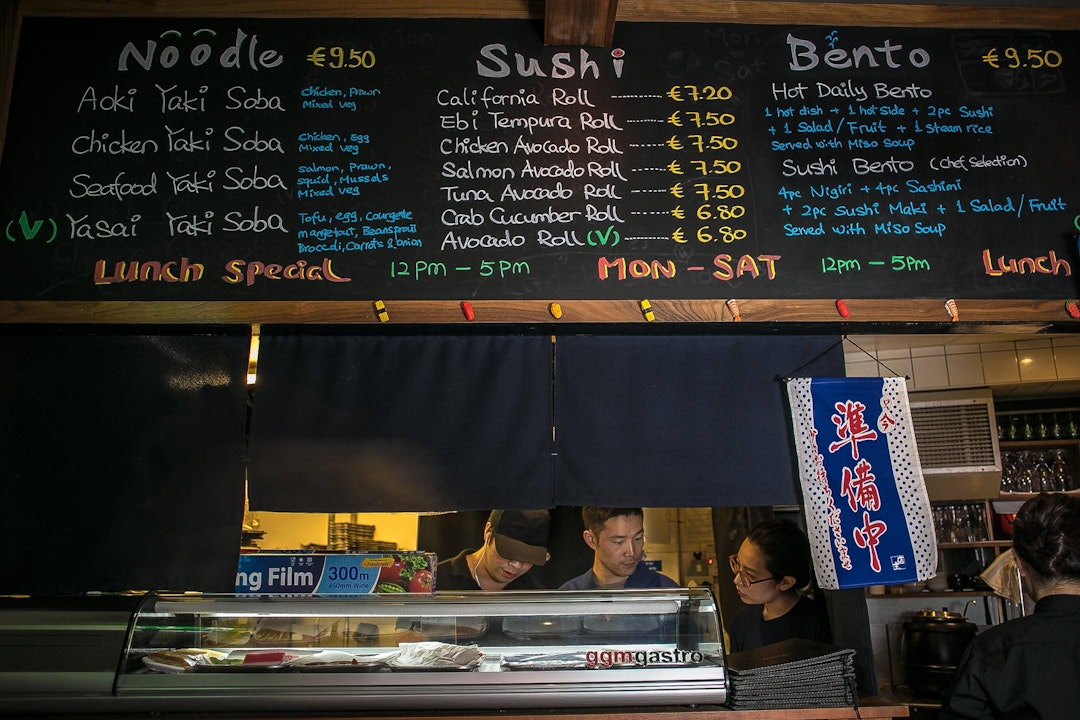 Nôôdle €9.50
Aoki Yaki Soba
Chicken, Prawn
Mixed veg
Chicken Yaki Soba
Chicken, Egg
Mixed veg
Seafood Yaki Soba
salmon, Prawn,
squid, Mussels
Mixed veg
(V) Yasai Yaki Soba
Tofu, egg, Courgette
mangetout, Beansprout
Broccoli, Carrots & onion
Sushi
California Roll -------- €7.20
Ebi Tempura Roll ------ €7.50
Chicken Avocado Roll ----- €7.50
Salmon Avocado Roll ----- €7.50
Tuna Avocado Roll ------ €7.50
Crab Cucumber Roll ------ €6.80
Avocado Roll (V) -------- €6.80
Bento €9.50
Hot Daily Bento
1 hot dish + 1 hot side + 2pc Sushi
+ 1 Salad/Fruit + 1 Steam rice
Served with Miso Soup
Sushi Bento (Chef Selection)
4pc Nigiri + 4pc Sashimi
+ 2pc Sushi Maki + 1 Salad/Fruit
Served with Miso Soup
Lunch Special 12pm - 5pm MON - SAT 12pm - 5pm Lunch
準備中
ng Film 300m
450mm Wide
ggmgastro